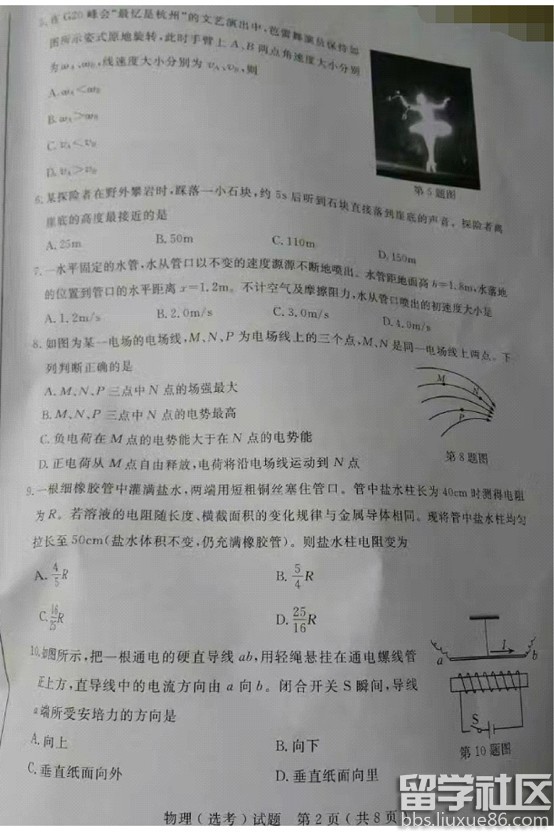 5.在G20峰会“最忆是杭州”的文艺演出中,芭蕾舞演员保持如
图所示姿式原地旋转,此时手臂上A、B两点角速度大小分别
为ωA、ωB,线速度大小分别为vA、vB,则
A.ωA<ωB
B.ωA>ωB
C.vA<vB
D.vA>vB
第5题图
6.某探险者在野外攀岩时,踩落一小石块,约5s后听到石块直接落到崖底的声音,探险者离
崖底的高度最接近的是
A.25m B.50m C.110m D.150m
7.一水平固定的水管,水从管口以不变的速度源源不断地喷出。水管距地面高h=1.8m,水落地
的位置到管口的水平距离x=1.2m。不计空气及摩擦阻力,水从管口喷出的初速度大小是
A.1.2m/s B.2.0m/s C.3.0m/s D.4.0m/s
8.如图为某一电场的电场线,M、N、P为电场线上的三个点,M、N是同一电场线上两点。下
列判断正确的是
A.M、N、P三点中N点的场强最大
B.M、N、P三点中N点的电势最高
C.负电荷在M点的电势能大于在N点的电势能
D.正电荷从M点自由释放,电荷将沿电场线运动到N点
M
N
P
第8题图
9.一根细橡胶管中灌满盐水,两端用短粗铜丝塞住管口。管中盐水柱长为40cm时测得电阻
为R。若溶液的电阻随长度、横截面积的变化规律与金属导体相同。现将管中盐水柱均匀
拉长至50cm(盐水体积不变,仍充满橡胶管)。则盐水柱电阻变为
A.4/5R B.5/4R
C.16/25R D.25/16R
10.如图所示,把一根通电的硬直导线ab,用轻绳悬挂在通电螺线管
正上方,直导线中的电流方向由a向b。闭合开关S瞬间,导线
a端所受安培力的方向是
A.向上 B.向下
C.垂直纸面向外 D.垂直纸面向里
I
a b
S
第10题图
物理(选考)试题 第2页(共8页)
留学社区
bbs.liuxue86.com